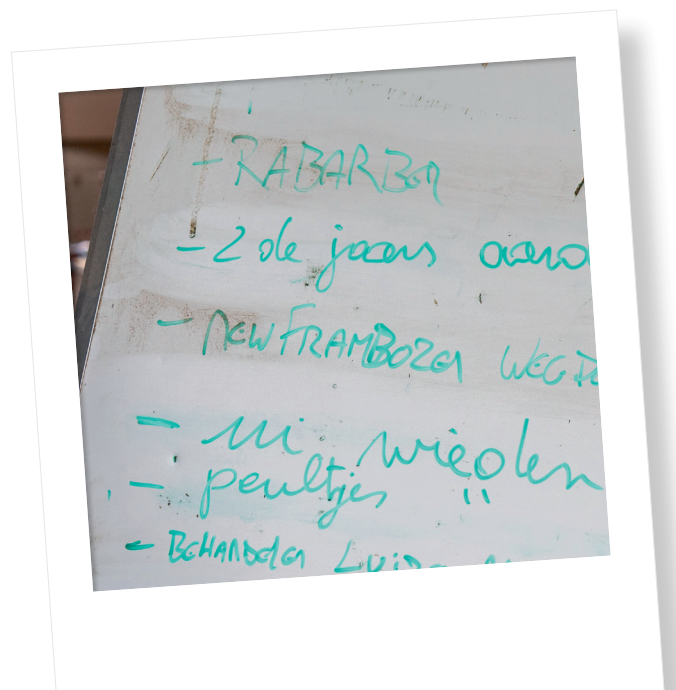 - RABARBER
- 2 de jaars
- NEW FRAMBOZEN WEG
- ui wieden
- peultjes "
- BEHANDELEN